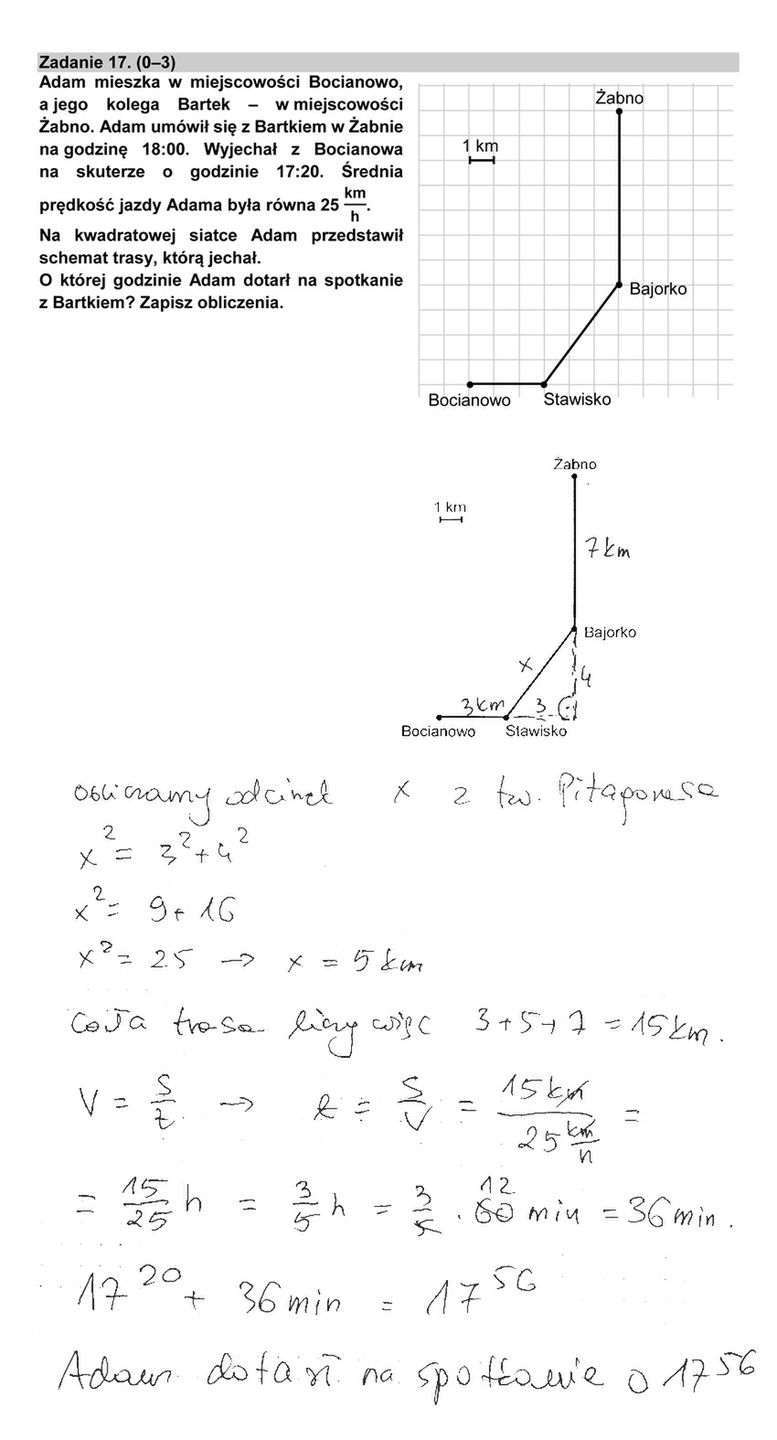 Zadanie 17. (0–3)
Adam mieszka w miejscowości Bocianowo,
a jego kolega Bartek – w miejscowości
Żabno. Adam umówił się z Bartkiem w Żabnie
na godzinę 18:00. Wyjechał z Bocianowa
na skuterze o godzinie 17:20. Średnia
prędkość jazdy Adama była równa 25 km/h.
Na kwadratowej siatce Adam przedstawił
schemat trasy, którą jechał.
O której godzinie Adam dotarł na spotkanie
z Bartkiem? Zapisz obliczenia.
Żabno
1 km
Bajorko
Bocianowo Stawisko
Żabno
1 km
7 km
Bajorko
x
4
3 km 3
Bocianowo Stawisko
Obliczamy odcinek x z tw. Pitagorasa
x² = 3² + 4²
x² = 9 + 16
x² = 25 → x = 5 km
Cała trasa liczy więc 3 + 5 + 7 = 15 km.
V = s/t → t = s/V = 15 km / 25 km/h =
= 15/25 h = 3/5 h = 3/5 · 60 12 min = 36 min.
17²⁰ + 36 min = 17⁵⁶
Adam dotarł na spotkanie o 17⁵⁶